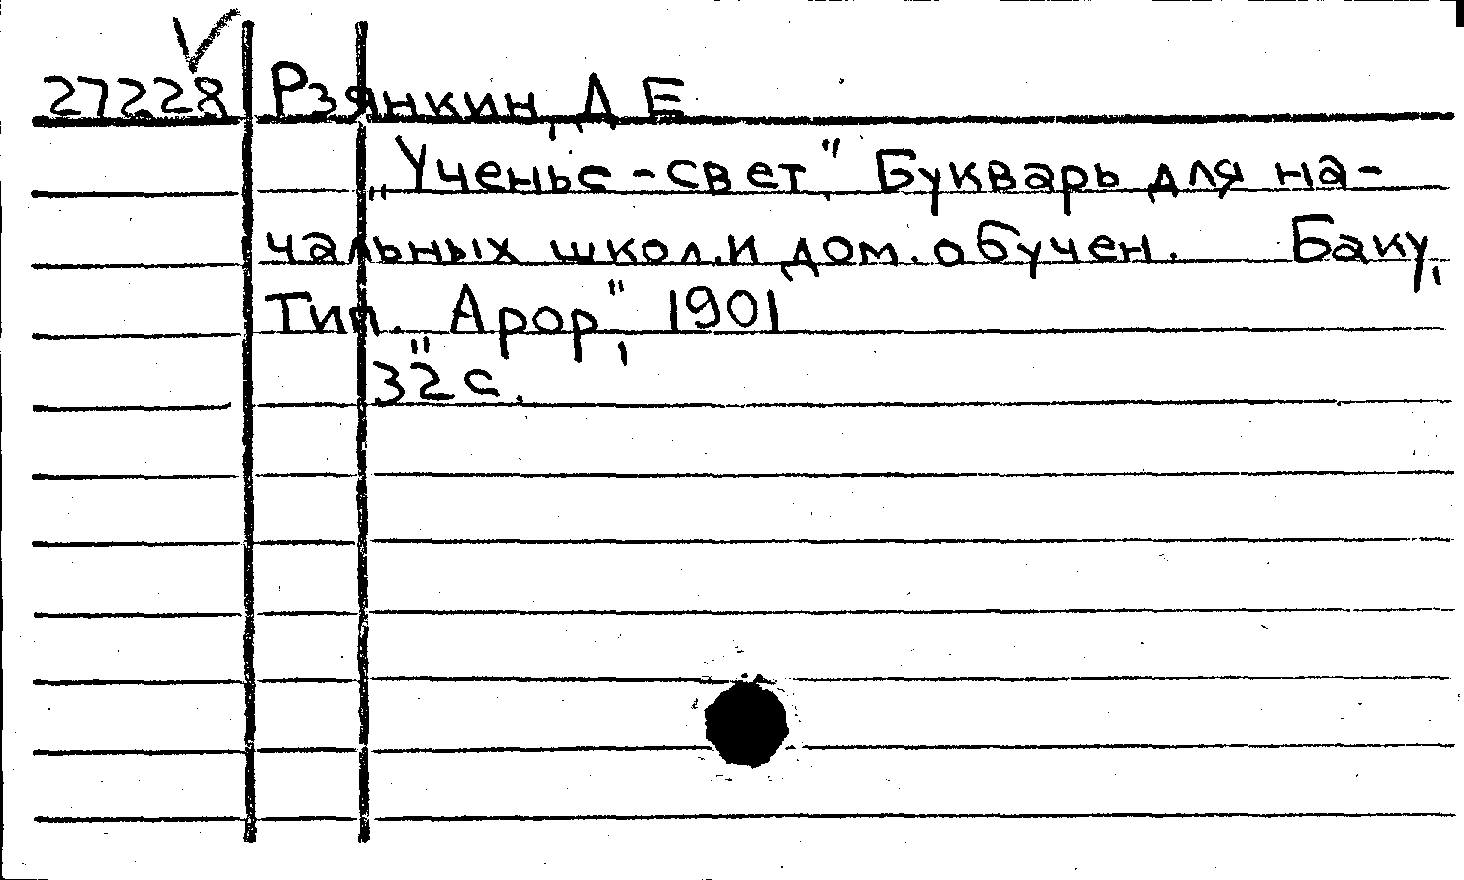 27228 Рзянкин, Д Е
„Ученье-свет". Букварь для на-
чальных школ. и дом. обучен. Баку,
Тип. „Арор", 1901
32 с.